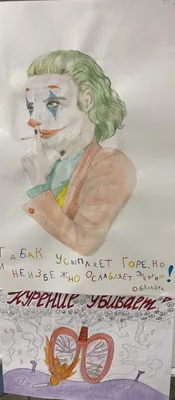 ТАБАК УСЫПЛЯЕТ ГОРЕ, НО
НЕИЗБЕЖНО ОСЛАБЛЯЕТ ЭНЕРГИЮ!
О.БАЛЬЗАК
КУРЕНИЕ УБИВАЕТ